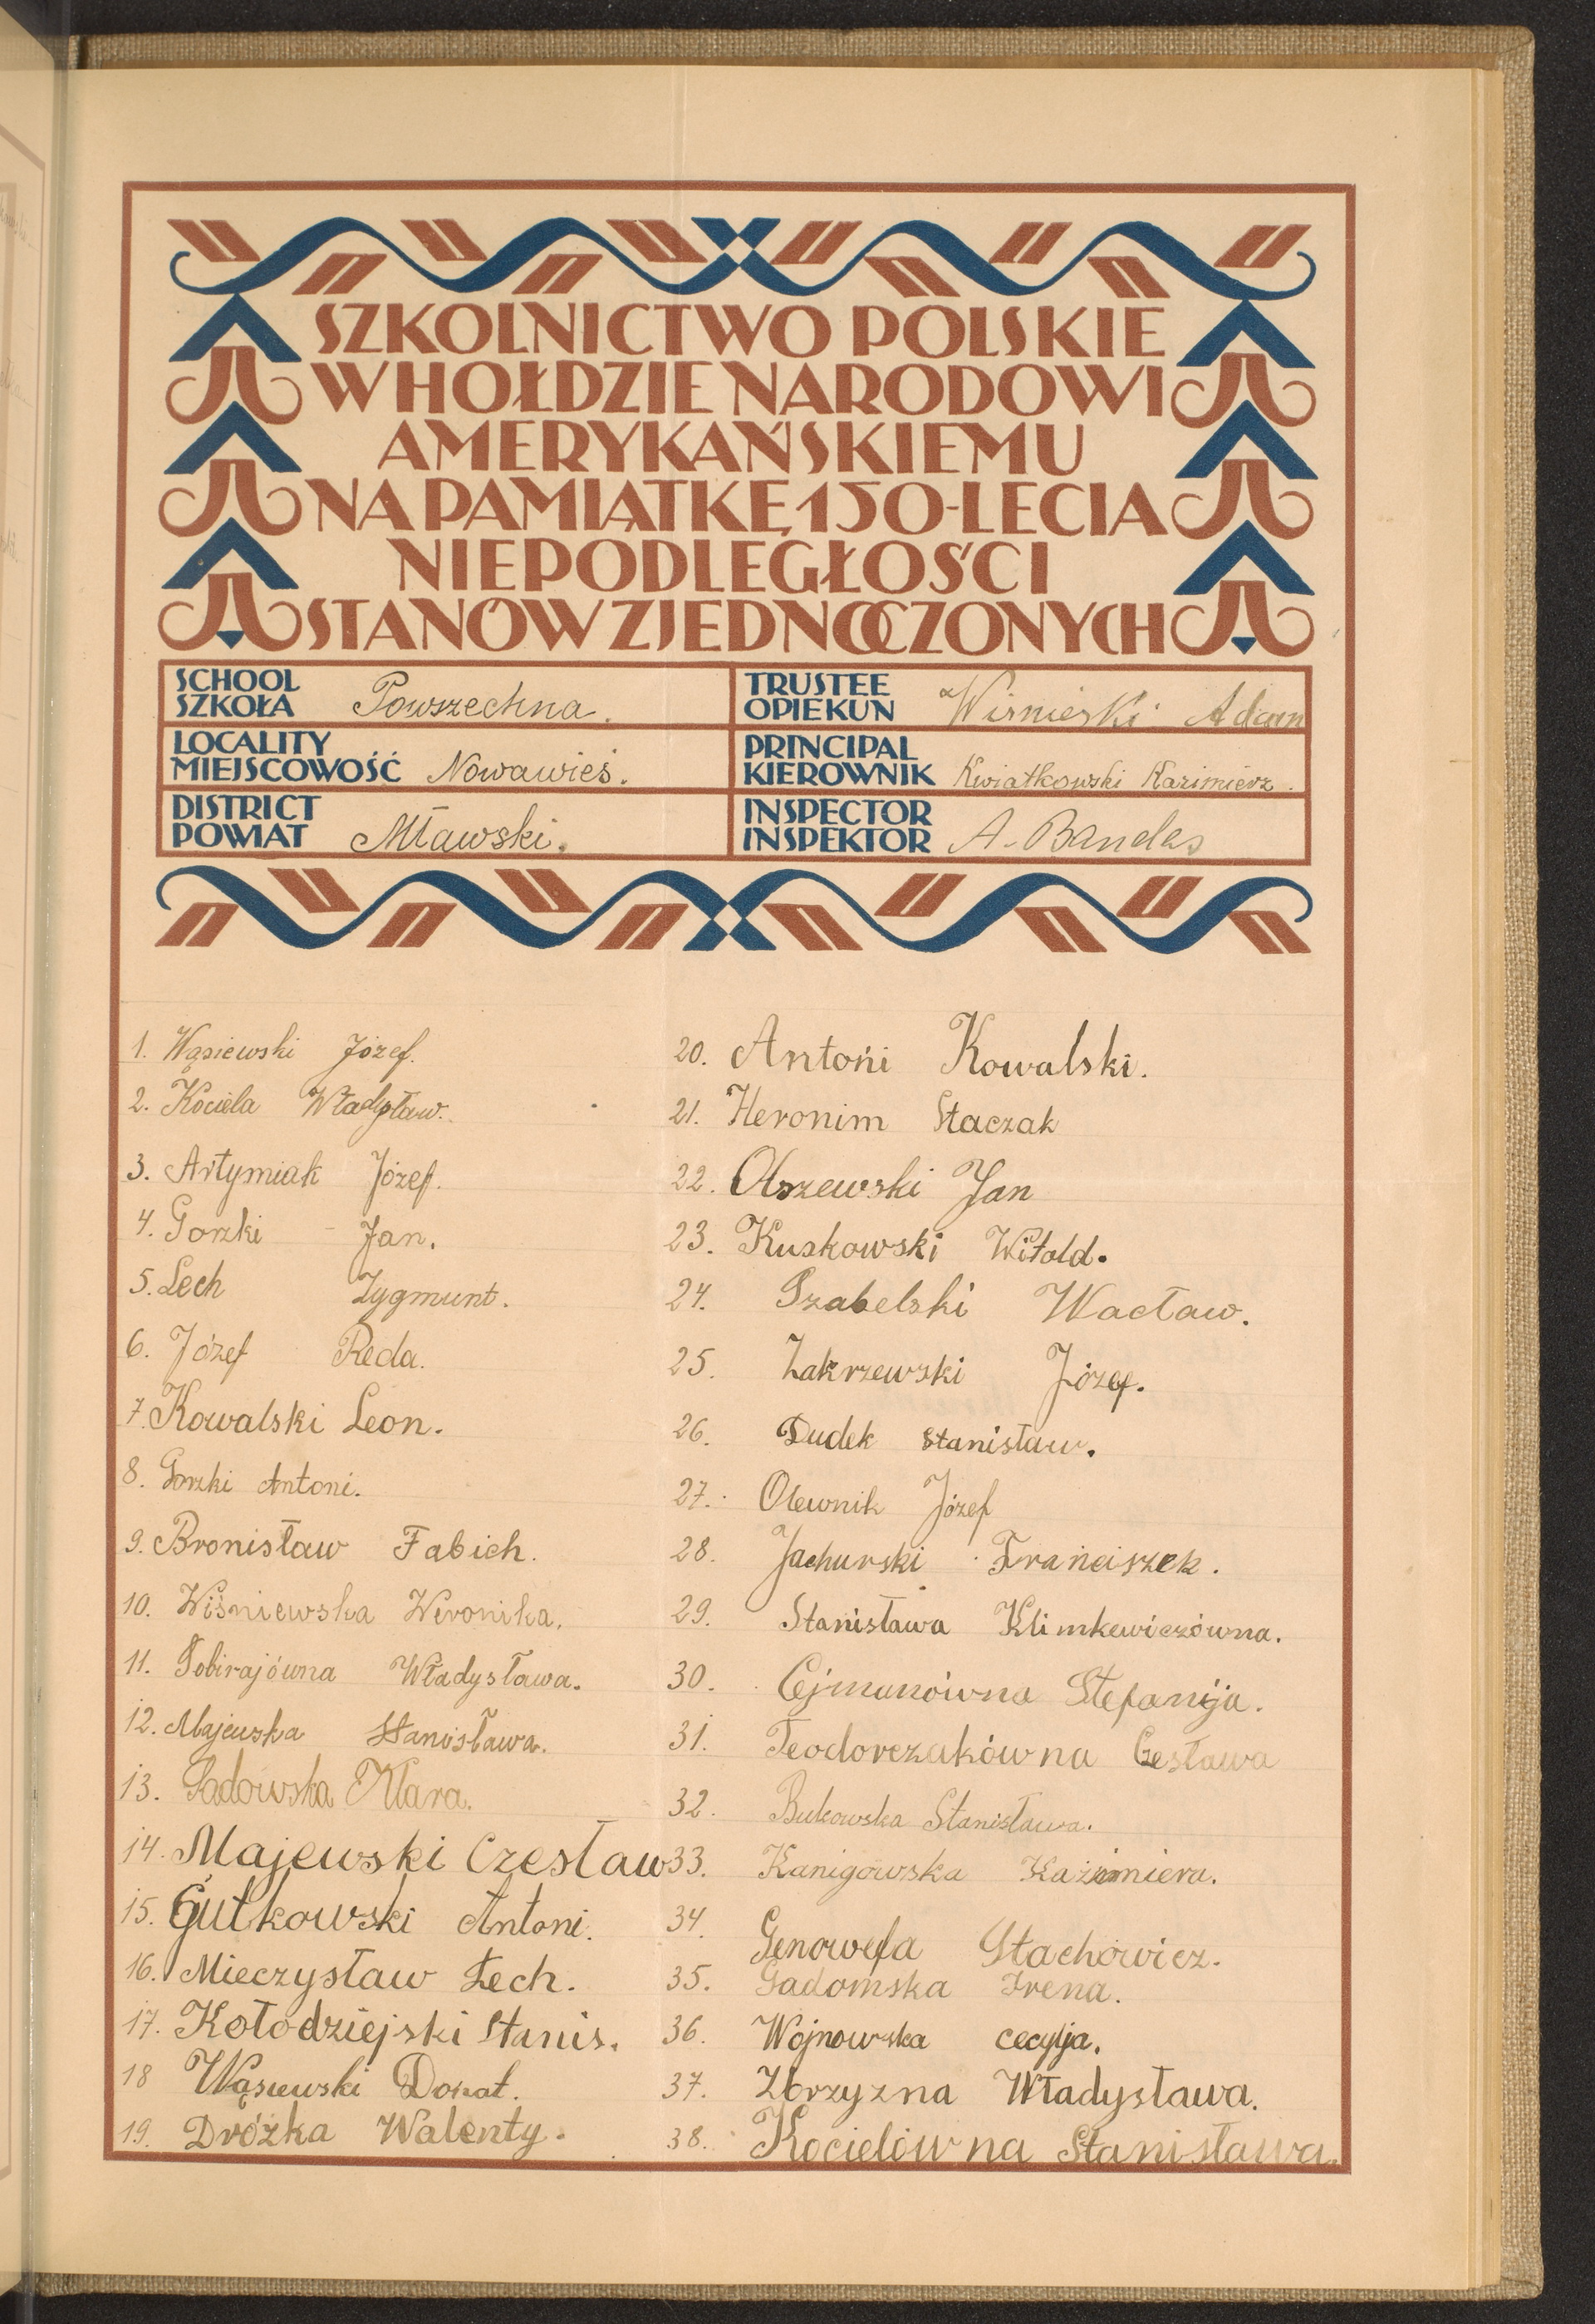 SZKOLNICTWO POLSKIE
W HOŁDZIE NARODOWI
AMERYKAŃSKIEMU
NA PAMIĄTKĘ 150-LECIA
NIEPODLEGŁOŚCI
STANÓW ZJEDNOCZONYCH
SCHOOL
SZKOŁA Powszechna.
TRUSTEE
OPIEKUN Wiśnieski Adam
LOCALITY
MIEJSCOWOŚĆ Nowawieś.
PRINCIPAL
KIEROWNIK Kwiatkowski Kazimierz.
DISTRICT
POWIAT Mławski.
INSPECTOR
INSPEKTOR A. Bandas
1. Wąsiewski Józef.
2. Kociela Władysław.
3. Artymiak Józef.
4. Gorzki Jan.
5. Lech Zygmunt.
6. Józef Reda.
7. Kowalski Leon.
8. Gorzki Antoni.
9. Bronisław Fabich.
10. Wiśniewska Weronika.
11. Pobirajówna Władysława.
12. Majewska Stanisława.
13. Sadowska Klara.
14. Majewski Czesław
15. Gutkowski Antoni.
16. Mieczysław Łech.
17. Kołodziejski Stanis.
18 Wąsiewski Donat.
19. Dróżka Walenty.
20. Antoni Kowalski.
21. Heronim Staczak
22. Olszewski Jan
23. Kuskowski Witold.
24. Szabelski Wacław.
25. Zakrzewski Józef.
26. Dudek Stanisław.
27. Olewnik Józef
28. Jachurski Franciszek.
29. Stanisława Klimkewiczówna.
30. Cejmanówna Stefanija.
31. Teodorczakówna Czesława
32. Bukowska Stanisława.
33. Kanigowska Kazimiera.
34. Genowefa Stachowicz.
35. Gadomska Irena.
36. Wojnowska cecylja.
37. Zbrzyzna Władysława.
38. Kocielówna Stanisława.